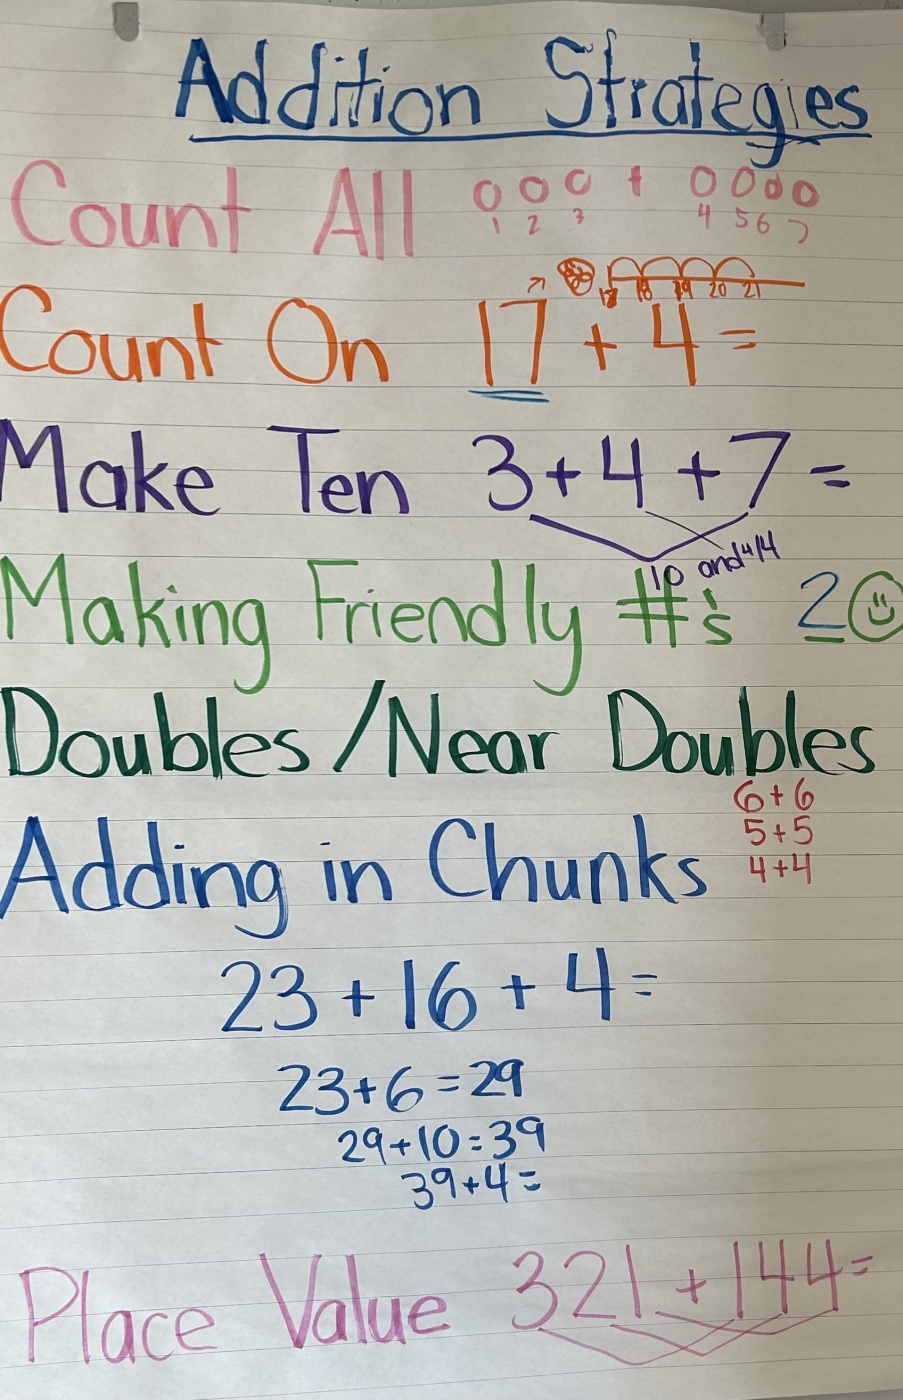 Addition Strategies
Count All 0 0 0 + 0 0 0 0
1 2 3 4 5 6 7
17 18 19 20 21
Count On 17 + 4 =
Make Ten 3 + 4 + 7 =
10 and 4 14
Making Friendly #'s 20
Doubles / Near Doubles
6 + 6
5 + 5
4 + 4
Adding in Chunks
23 + 16 + 4 =
23 + 6 = 29
29 + 10 = 39
39 + 4 =
Place Value 321 + 144 =